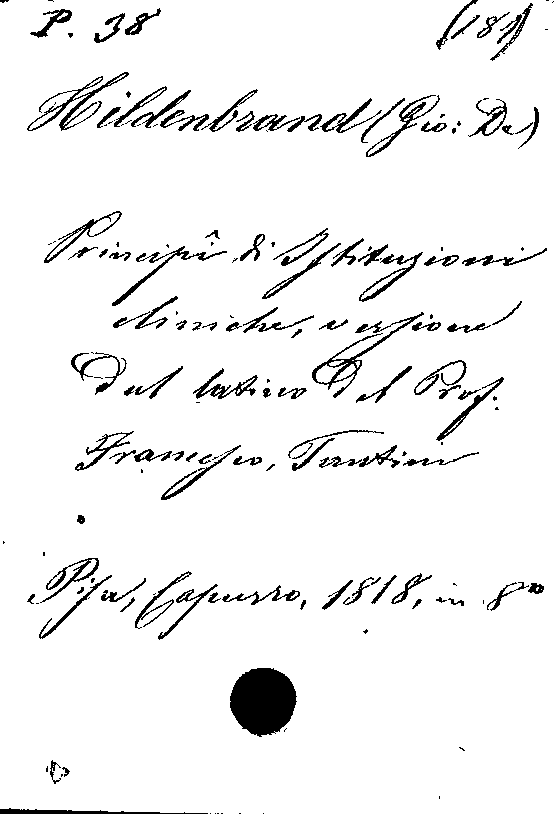 P. 38 (181)
Hildenbrand (Gio: De)
Principî di Istituzioni
cliniche, versione
dal latino del Prof.
Francesco, Tantini
Pisa, Capurro, 1818, in 8º